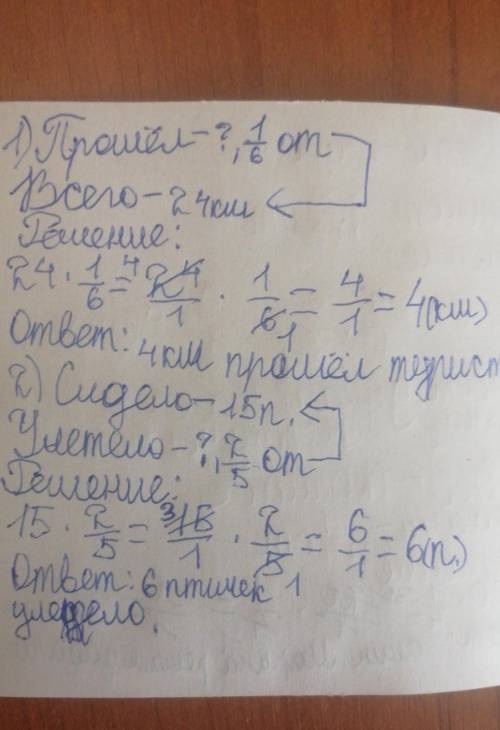 1) Прошёл - ?, 1/6 от
Всего - 24км
Решение:
24 · 1/6 = 24/1 · 1/6 = 4/1 = 4(км)
Ответ: 4км прошёл турист
2) Сидело - 15п.
Улетело - ?, 2/5 от
Решение:
15 · 2/5 = 15/1 · 2/5 = 6/1 = 6(п.)
Ответ: 6 птичек
улетело.